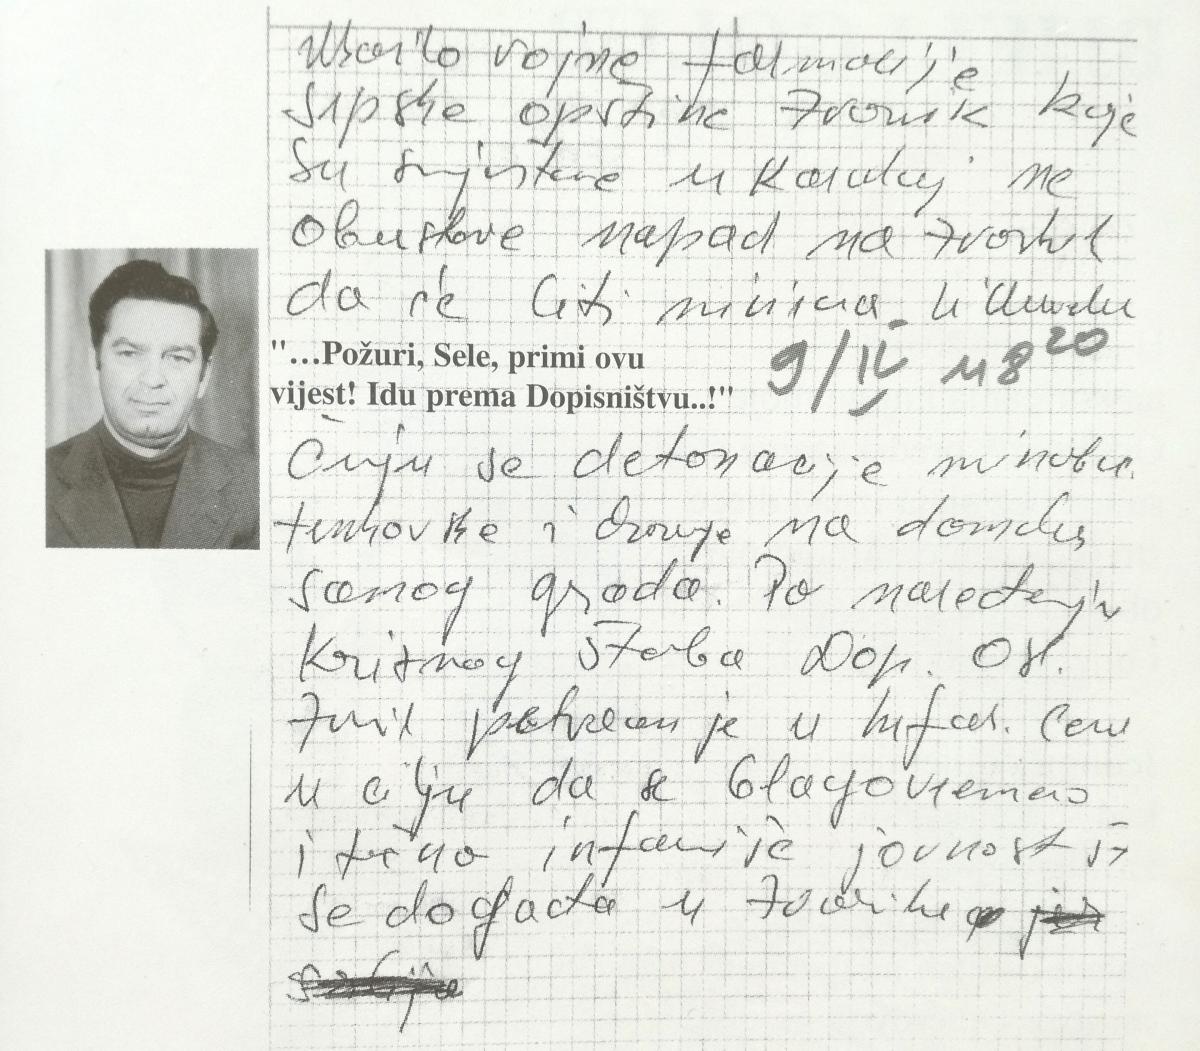 vojne formacije
srpske opštine Zvornik koje
su smještene u Karakaj ne
obustave napad na Zvornik
da će biti
"…Požuri, Sele, primi ovu
vijest! Idu prema Dopisništvu..!"
9/IV u 8 20
Čuju se detonacije minobac.
tenkovske i druge na domaku
samog grada. Po naređenju
Kriznog štaba Dop. Osl.
je u Infor. Cent
u cilju da se blagovremeno
i tačno informiše javnost št
se događa u Zvorniku